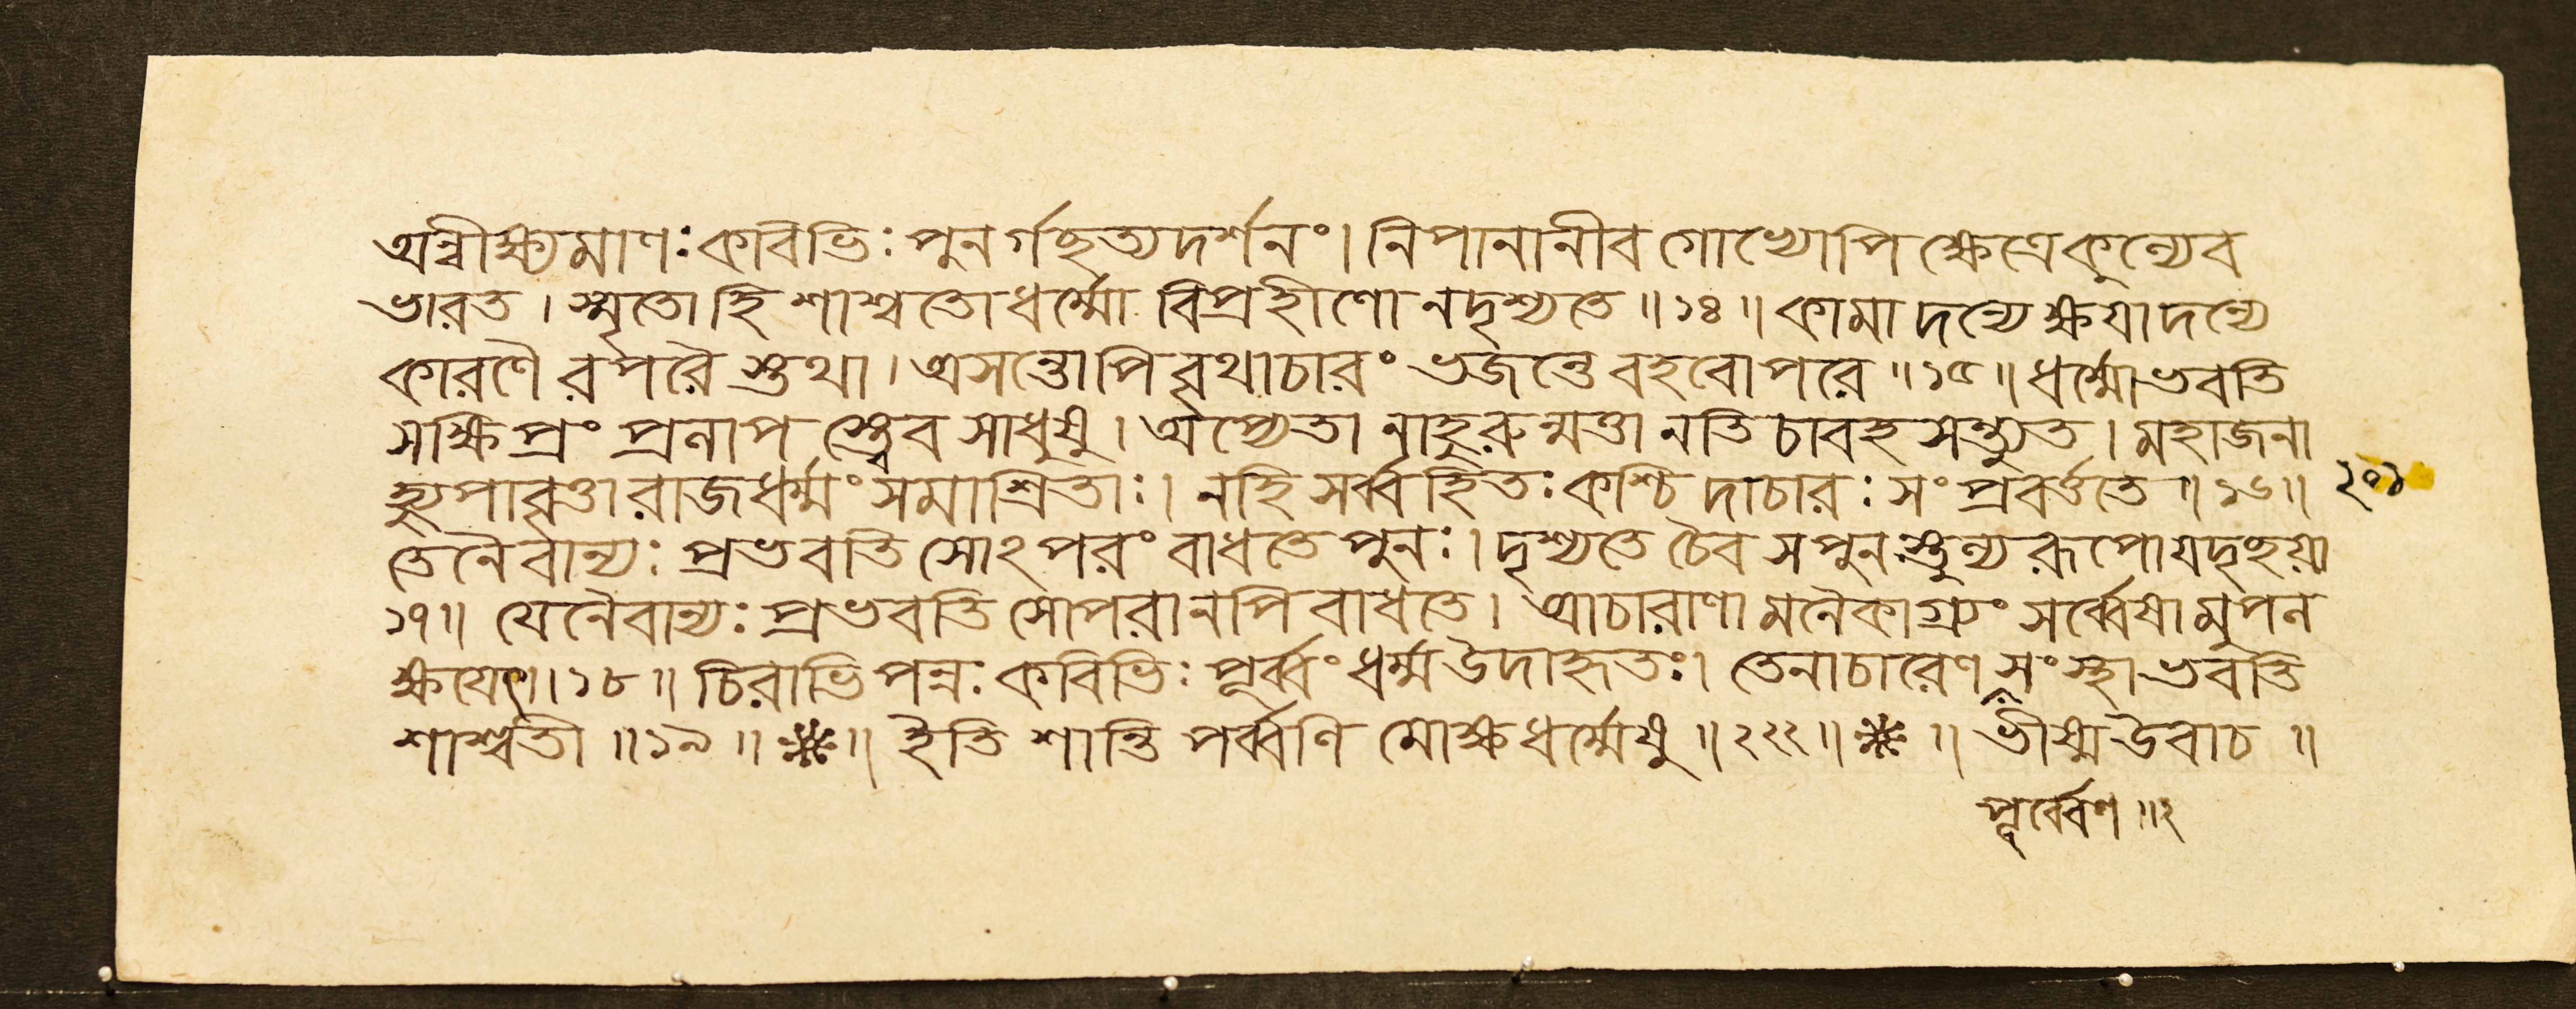 অন্বীক্ষ্যমাণঃ কবিভিঃ পুনর্গছত্যদর্শনং। নিপানানীব গোখ্যোপি ক্ষেত্রে কুন্যেব
ভারত। স্মৃতোহি শাশ্বতোধর্ম্মো বিপ্রহীণো নদৃশ্যতে॥১৪॥ কামাদন্যে ক্ষয়াদন্যে
কারণৈ রপরৈ স্তথা। অসন্তোপি বৃথাচারং ভজন্তে বহবোপরে॥১৫॥ ধর্ম্মোভবতি
সক্ষিপ্রং প্রনাপ স্ত্বেব সাধুষু। অপ্যেতা নাহুরুন্মত্তা নতি চাবহসন্ত্যুত। মহাজনা
হ্যুপাবৃত্তা রাজধর্ম্মং সমাশ্রিতাঃ। নহি সর্ব্বহিতঃ কশ্চি দাচারঃ সংপ্রবর্ততে॥১৬॥
তেনৈবান্যঃ প্রভবতি সোঽপরং বাধতে পুনঃ। দৃশ্যতে চৈব সপুন স্তুন্য রূপোযদৃছয়া
১৭॥ যেনৈবান্যঃ প্রভবতি সোপরানপি বাধতে। আচারাণা মনৈকাগ্র্যং সর্ব্বেষামুপন
ক্ষয়েৎ॥১৮॥ চিরাভিপন্নঃ কবিভিঃ পূর্ব্বং ধর্ম্মউদাহৃতঃ। তেনাচারেণ সংস্থা ভবতি
শাশ্বতী॥১৯॥ ※॥ ইতি শান্তি পর্ব্বণি মোক্ষধর্ম্মেষু॥২২২॥※॥ ভীষ্মউবাচ॥
পূর্ব্বেণ॥২